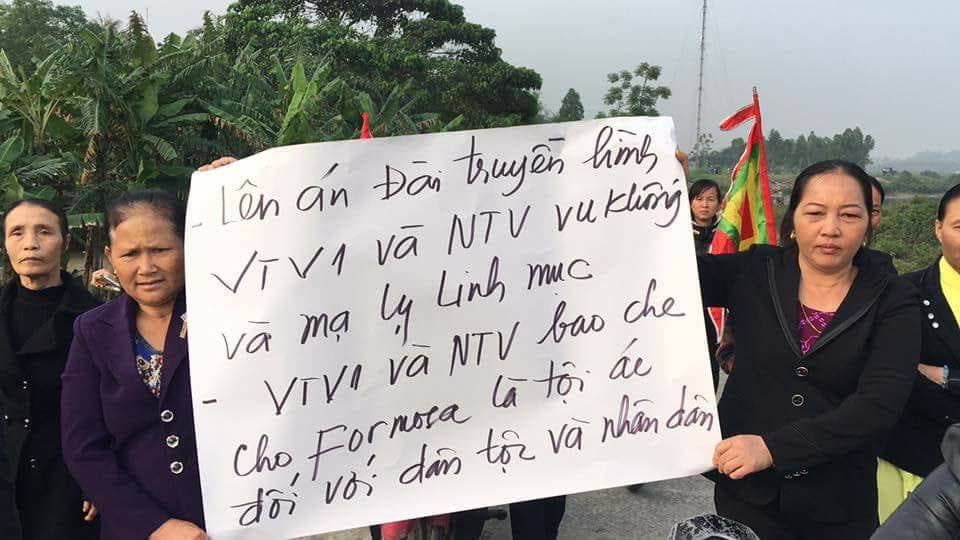 - Lên án Đài truyền hình
VTV1 và NTV vu khống
và mạ lỵ Linh mục
- VTV1 và NTV bao che
cho Formosa là tội ác
đối với dân tộc và nhân dân